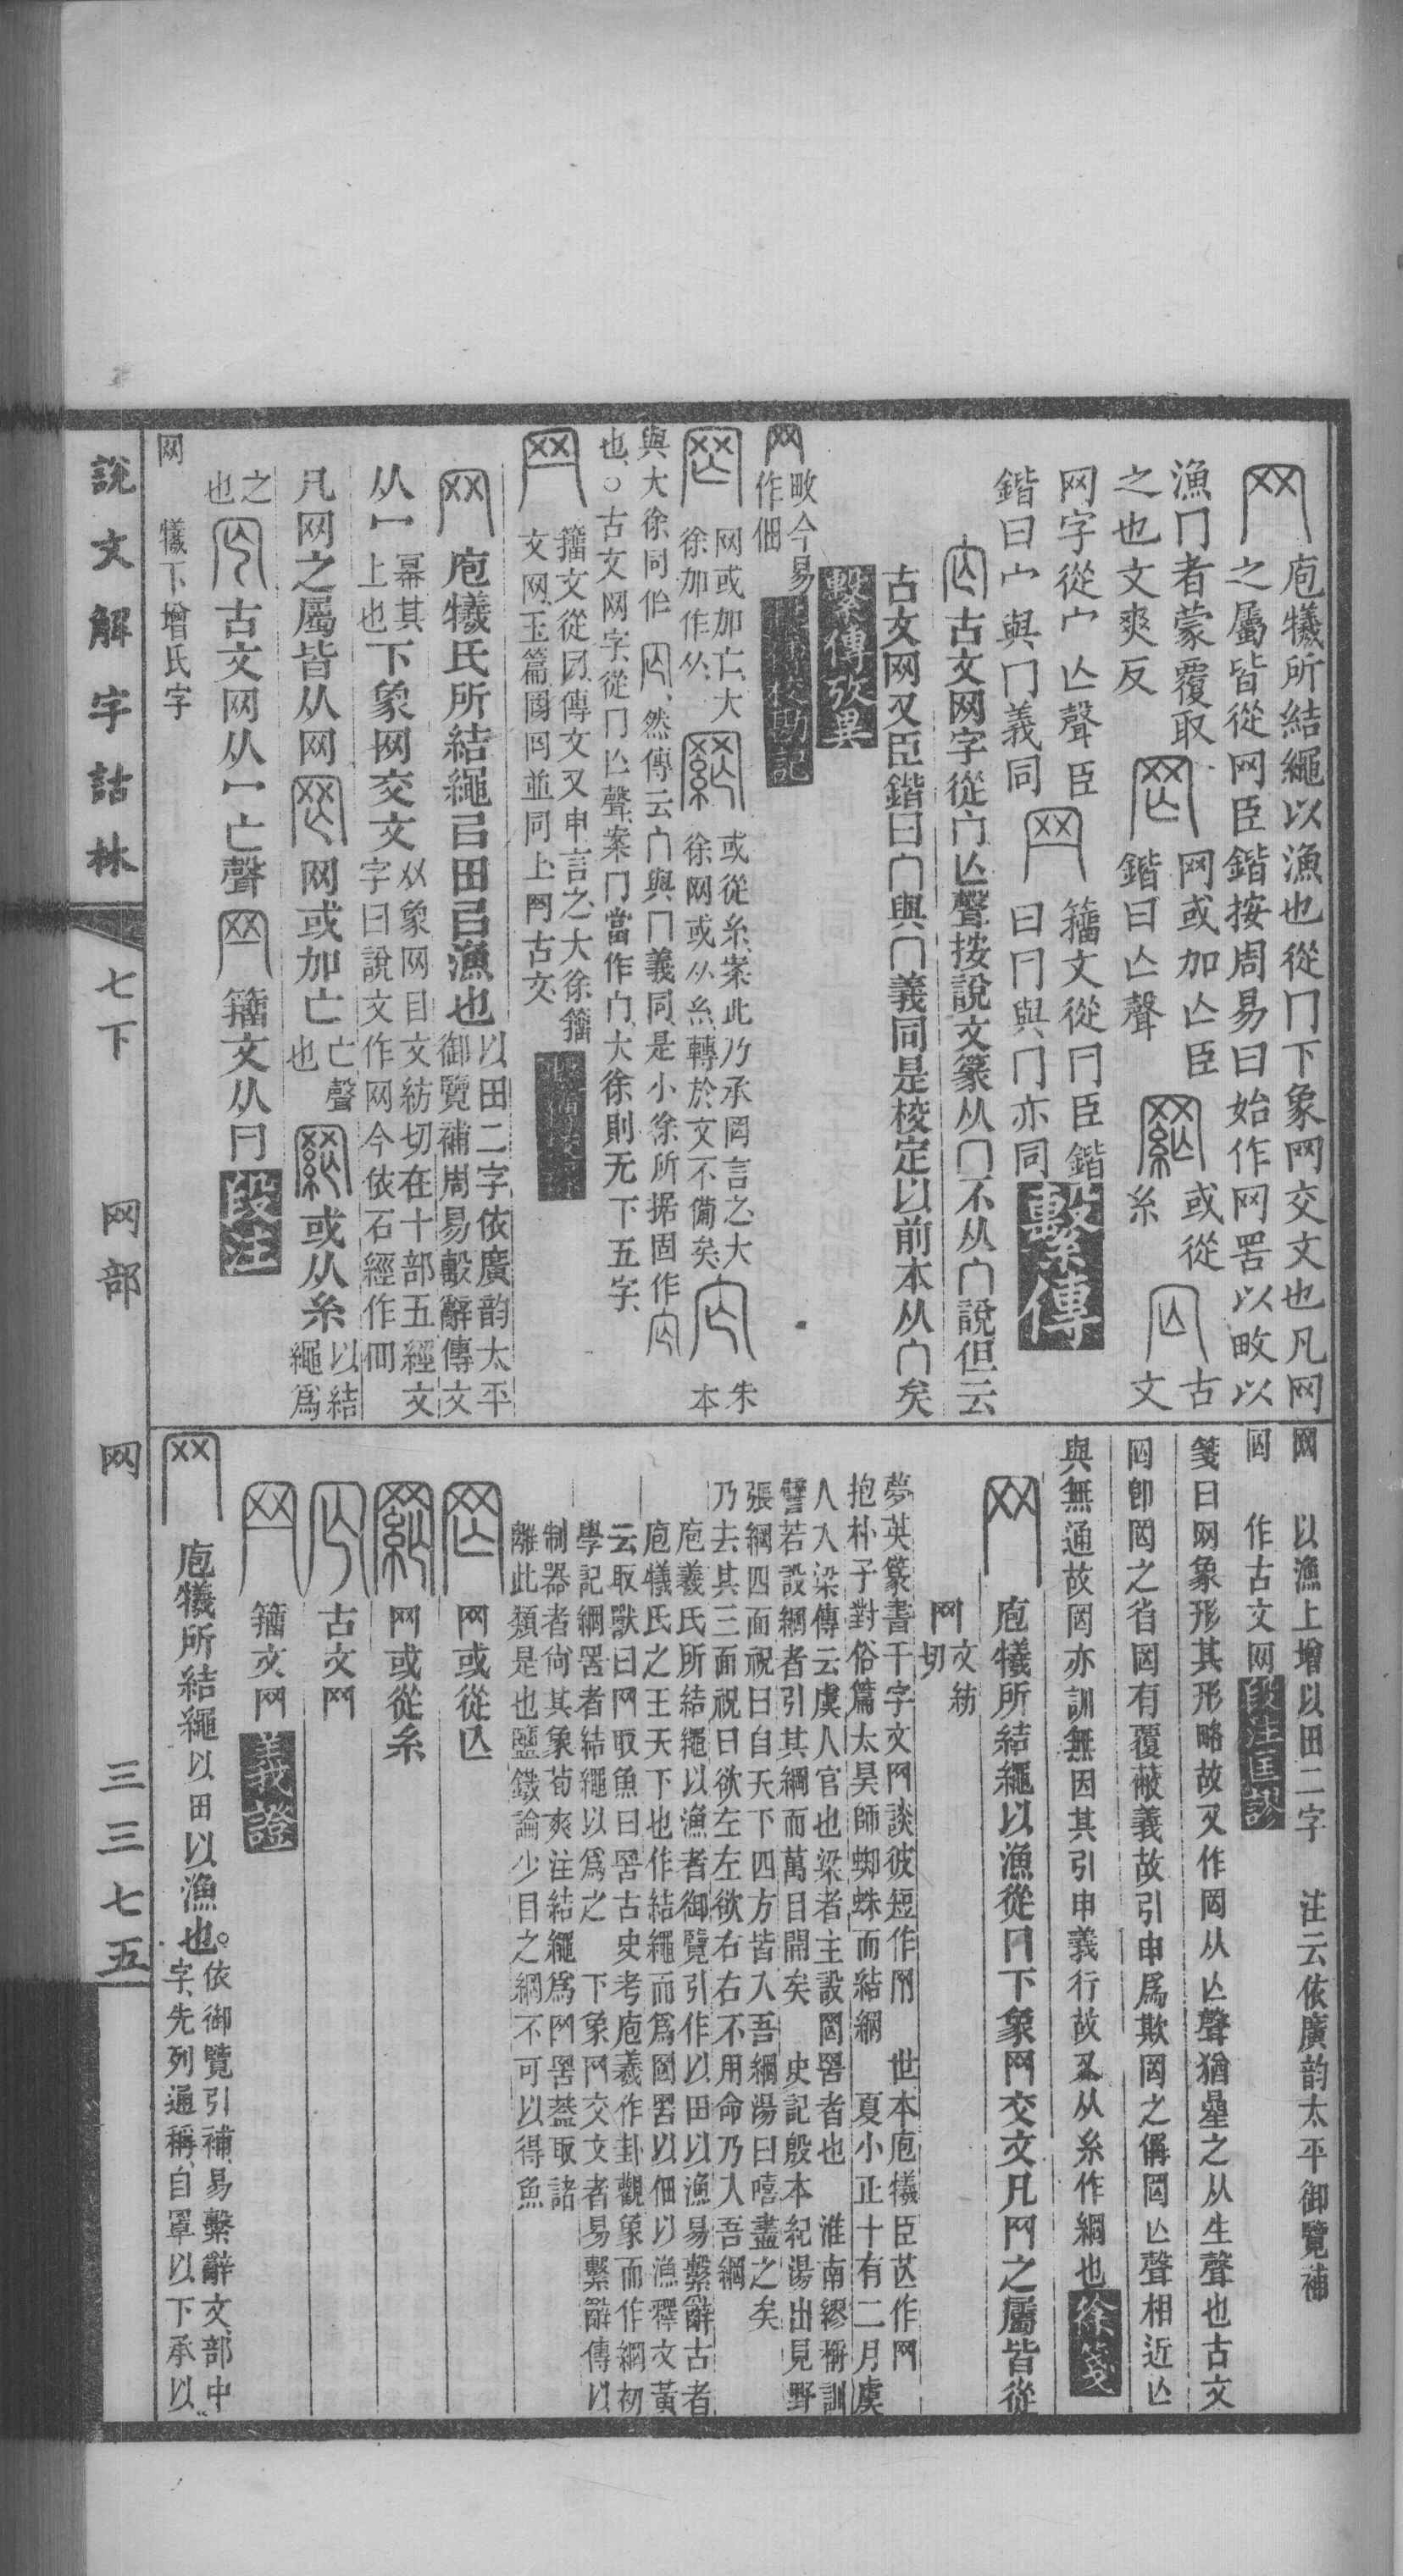 网 庖犧所結繩以漁也從冂下象网交文也凡网
之屬皆從网臣鍇按周易曰始作网罟以畋以
漁冂者蒙覆取
之也文爽反
网或加亾臣
鍇曰亾聲
或從
糸
古
文
网字從宀亾聲臣
鍇曰宀與冂義同
籒文從冃臣鍇
曰冃與冂亦同
繫傳
古文网字從宀亾聲按說文篆从冂不从宀說但云
古文网又臣鍇曰宀與冂義同是校定以前本从宀矣
繫傳攷異
网
畋今易
作佃
校勘記
网或加亡大
徐加作从
或從糸案此乃承罔言之大
徐网或从糸轉於文不僃矣
朱
本
與大徐同作 然傳云宀與冂義同是小徐所據固作
也○古文网字從冂亾聲案冂當作宀大徐則无下五字
籒文從冃傳文又申言之大徐籒
文网玉篇 並同上网古文
网 庖犧氏所結繩㠯田㠯漁也
以田二字依廣韵太平
御覽補周易毄辭傳文
从冖
冪其
上也
下象网交文
㸚象网目文紡切在十部五經文
字曰說文作网今依石經作罒
凡网之屬皆从网
网或加亡
亡聲
也
或从糸
以結
繩爲
之
也
古文网从冖亡聲
籒文从冃
段注
网 犧下增氏字
网 以漁上增以田二字 注云依廣韵太平御覽補
作古文网
段注匡謬
箋曰网象形其形略故又作罔从亾聲猶曐之从生聲也古文
卽罔之省罔有覆蔽義故引申爲欺罔之偁罔亾聲相近亾
與無通故罔亦訓無因其引申義行故又从糸作網也
徐箋
网 庖犧所結繩以漁從冂下象网交文凡网之屬皆從
网
文紡
切
夢英篆書千字文网談彼短作网 世本庖犧臣芒作网
抱朴子對俗篇太昊師蜘蛛而結網 夏小正十有二月虞
人入梁傳云虞人官也梁者主設罔罟者也 淮南繆稱訓
譬若設網者引其綱而萬目開矣 史記殷本紀湯出見野
張網四面祝曰自天下四方皆入吾網湯曰嘻盡之矣
乃去其三面祝曰欲左左欲右右不用命乃入吾網
庖羲氏所結繩以漁者御覽引作以田以漁易繫辭古者
庖犧氏之王天下也作結繩而爲罔罟以佃以漁釋文黃
云取獸曰网取魚曰罟古史考庖羲作卦觀象而作網初
學記網罟者結繩以爲之 下象网交文者易繫辭傳以
制器者尙其象荀爽注結繩爲网罟蓋取諸
離此類是也鹽鐵論少目之網不可以得魚
网或從亾
网或從糸
古文网
籒文网
義證
网 庖犧所結繩以田以漁也。
依御覽引補易繫辭文部中
字先列通稱自罩以下承以
說文解字詁林 七下 网部 网 三三七五